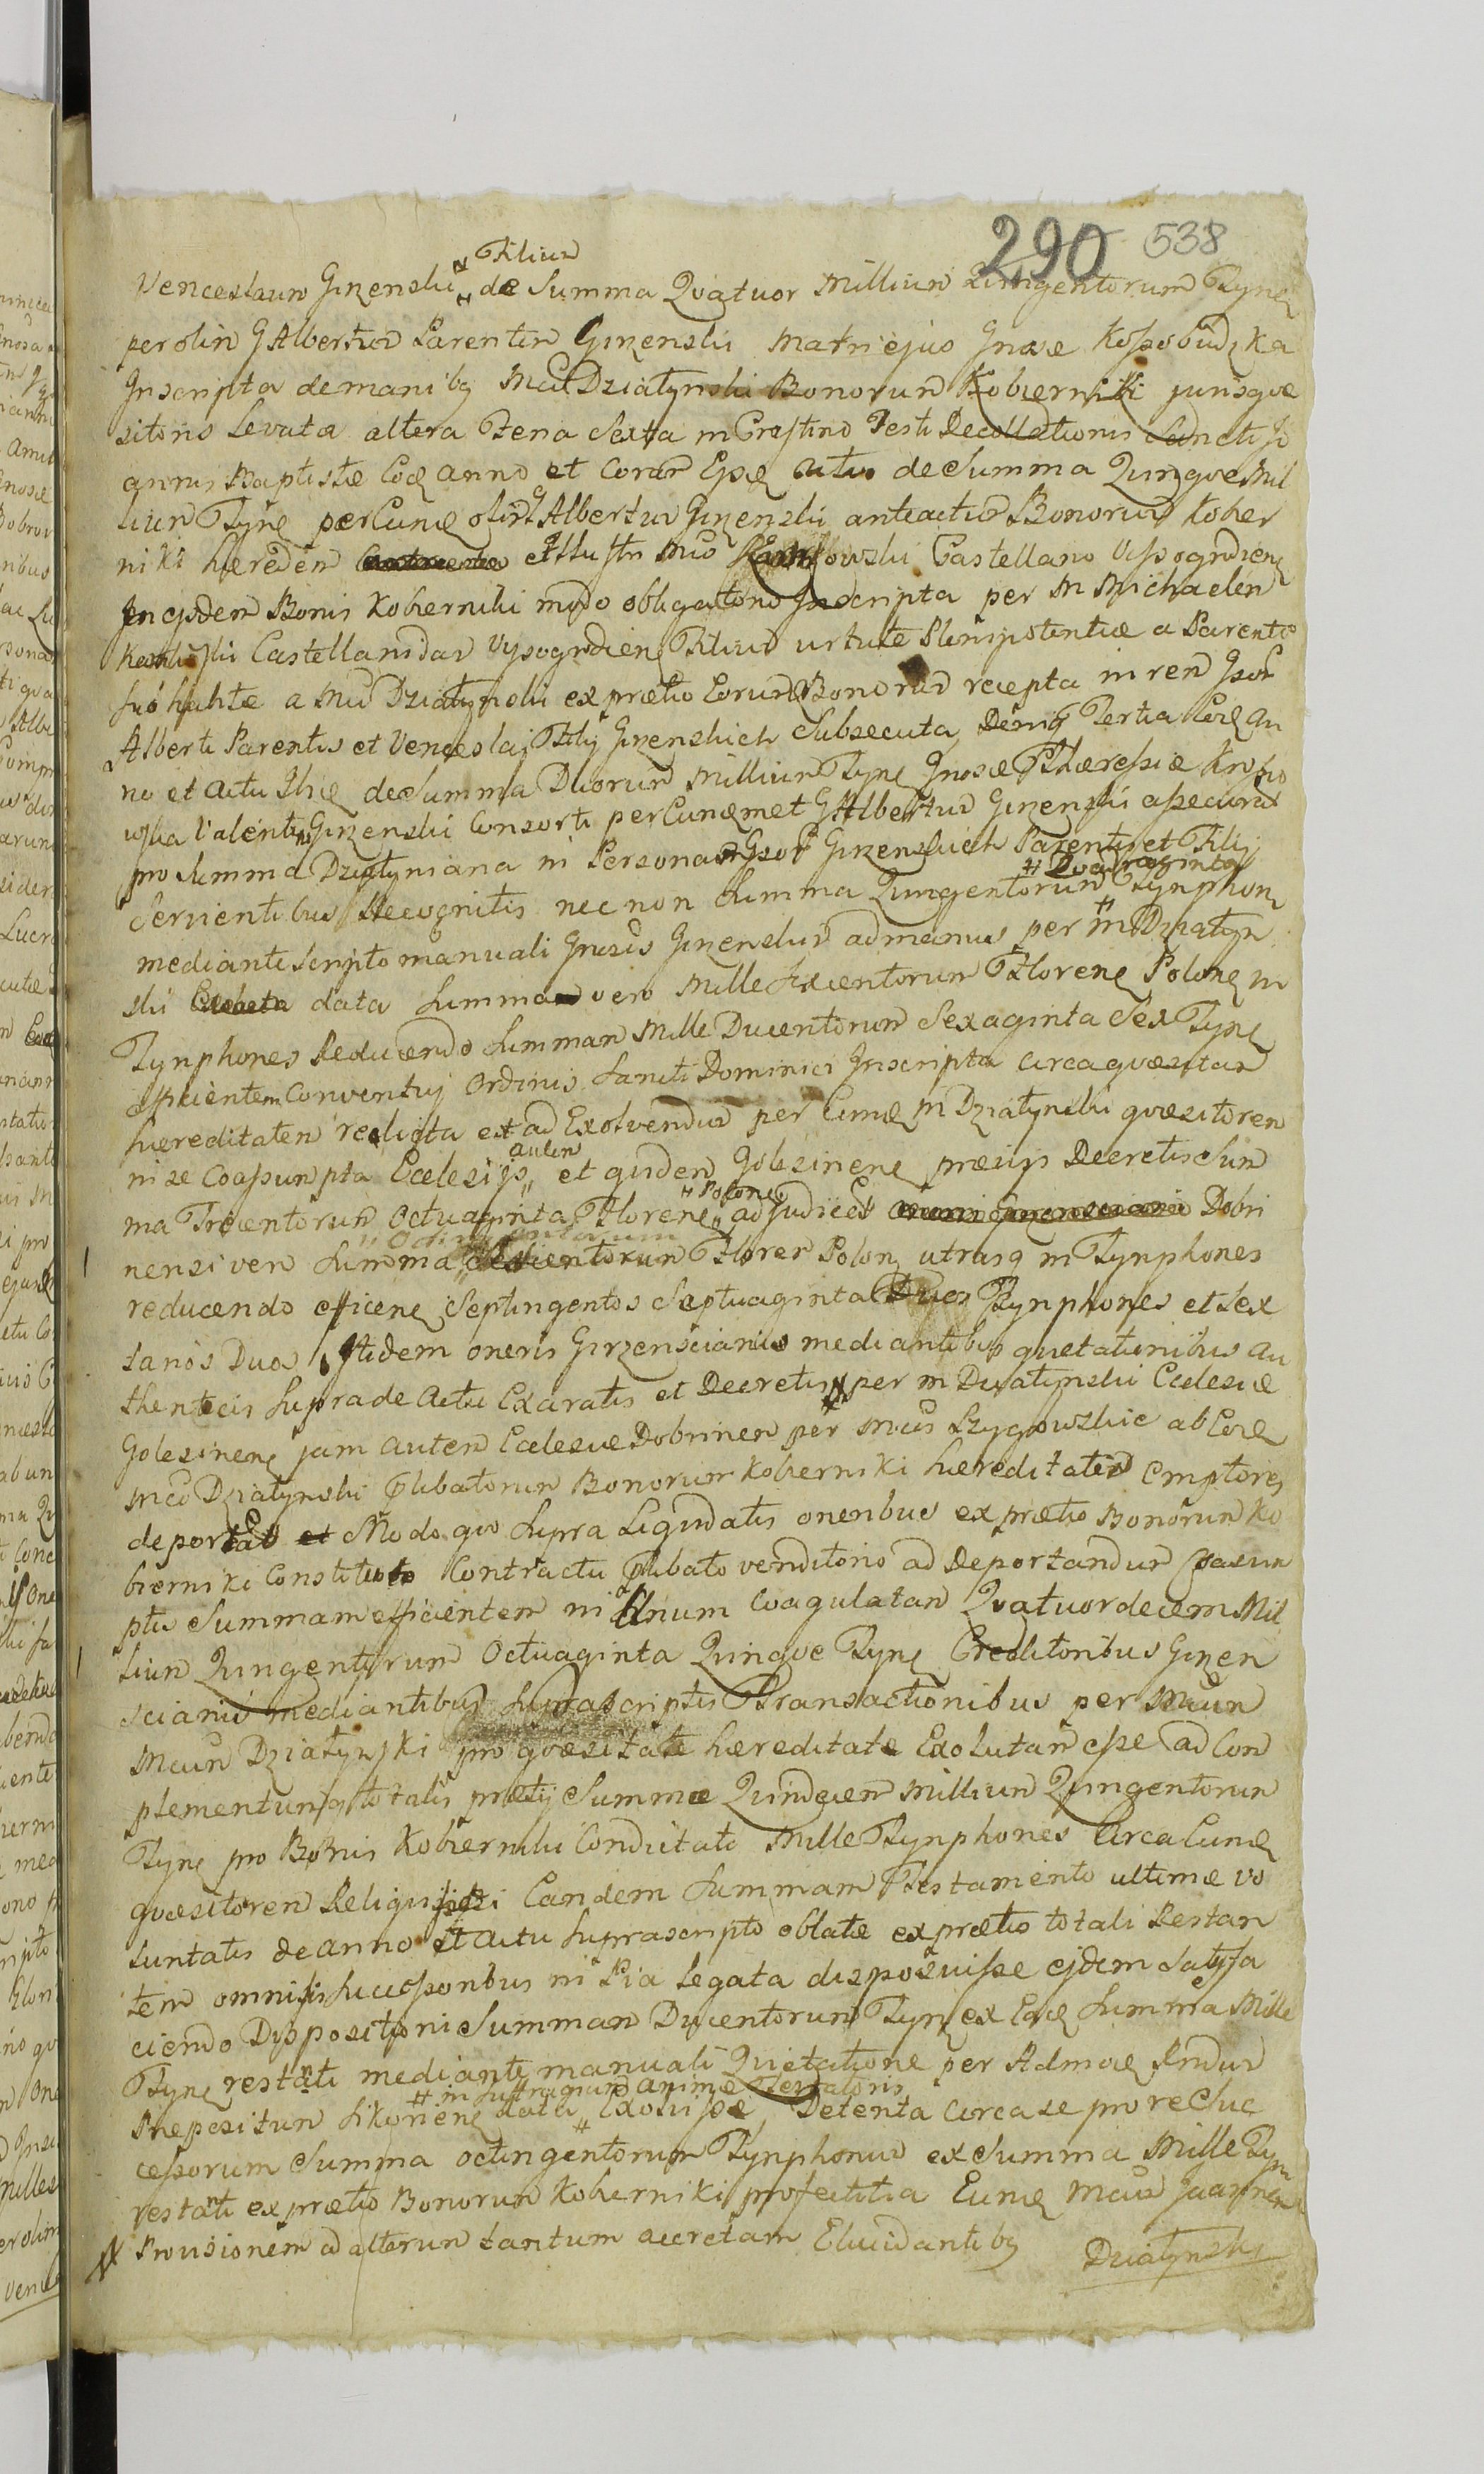 290 538
Filium
Venceslaum Girzenski de Summa Qvatuor Millium Quingentorum Tynę
per olim G Albertum Parentem Girzenski Matri ejus Gnosæ Kossobudzka
Inscripta de manibg Mci Dziatynski Bonorum Kobierniki jurisqvæ
sitoris Levata altera Feria Sexta in Crastino Festi Decollationis Sancti Jo
annis Baptistæ Eod anno et Coram Ejsd Actis de Summa Quinqve Mil
lium Tynę per Eund olim G Albertum Girzenski anteactum Bonorum Kober
niki hæredem Illustri Mco Castellano Vyssogrdienę
In ejsdem Bonis Kobierniki modo obligatorio Inscripta per M Michaelem
Castellanidam Vysogrdienę Filium virtute Plenipotentiæ a Parente
suo habitæ a Mco Dziatynski ex prætio Eorund Bonorum recepta in rem Gsor
Alberti Parentis et Venceslai Filij Girzenskich Subsecuta, Deniq Tertia Eod An
no et Actu Ihid de Summa Duorum Millium Tynę Gnosæ Theressiæ
Valentini Girzenski Consorti per Eundemet G Albertum Girzenski assecurat
pro Summa Dziatyniana in Personas Gsor Girzenskich Parentis et Filij
Qvadraginta
Servientibus Recognitis nec non Summa Quingentorum Tynphon
mediante Scripto manuali Gnosis Girzenskim ad manus per M Dziatyn
ski data Summa vero Mille Sexcentorum Florenę Polonę in
Tynphones Reducendo Summam Mille Ducentorum Sexaginta Sex Tynę
efficientem Conventuj Ordinis Sancti Dominici Inscripta circa qvæsitam
hæreditatem relicta et ad Exolvendum per Eund M Dziatynski qvæsitorem
autem
in se Coassumpta Ecclesijs et quidem Golesinenę prævijs Decretis Sum
Polonę
ma Trecentorum Octuaginta Florenę adjudicet Dobri
Octingentorum
nensi vero Summa Florer Polon utrasq in Tynphones
reducendo efficienę Septingentos Septuaginta Duos Tynphones et Sex
tanos Duos Itidem oneris Girzensciana mediantibus quietationibus au
thenticis Supra de Actu Exaratis et Decretis per M Dziatinski Ecclesiæ
Golesinenę jam autem Ecclesiæ Dobrinen per Mcus Szygowskie ab Eod
Mco Dziatynski plibatorum Bonorum Kobierniki hæreditatis Emptores
deportat Modo quo Supra Liqvidatis oneribus ex prætio Bonorum Ko
bierniki Constituto Contractu plibato venditorio ad Deportandum Coasum
ptis Summam efficientem in Unum Coagulatam Qvatuordecem Mil
lium Quingentorum Octuaginta Quinqve Tynę Creditoribus Girzen
scianis mediantibus Suprascriptis Transactionibus per Mcum
Mcum Dziatynski pro qvæsitate hæreditate Exolutam esse ad Com
plementumq totalis prætij Summæ Quindecem Millium Quingentorum
Tynę pro Bonis Kobierniki Condictato Mille Tynphones circa Eund
qvæsitorem Eandem Summam Testamento ultimæ vo
luntatis de anno et Actu Suprascripto oblatæ ex prætio totali Restan
tem omnisis Successoribus in Pia Legata disposuisse ejdem Satysfa
ciendo Dispositioni Summam Ducentorum Tynę ex Ead Summa Mille
Tynę restanti mediante manuali Quietatione per Admod Rndum
in Suffragium animæ Testatoris
Præpositum Sikorienę data Exolvisse, Detenta circa se pro re Suc
cessorum Summa octingentorum Tynphonum ex Summa Mille Tyn
restanti ex prætio Bonorum Kobierniki profectitia Eund Mcum Joannem
Provisionem ad alterum tantum accretam Elucidantibg Dziatynski